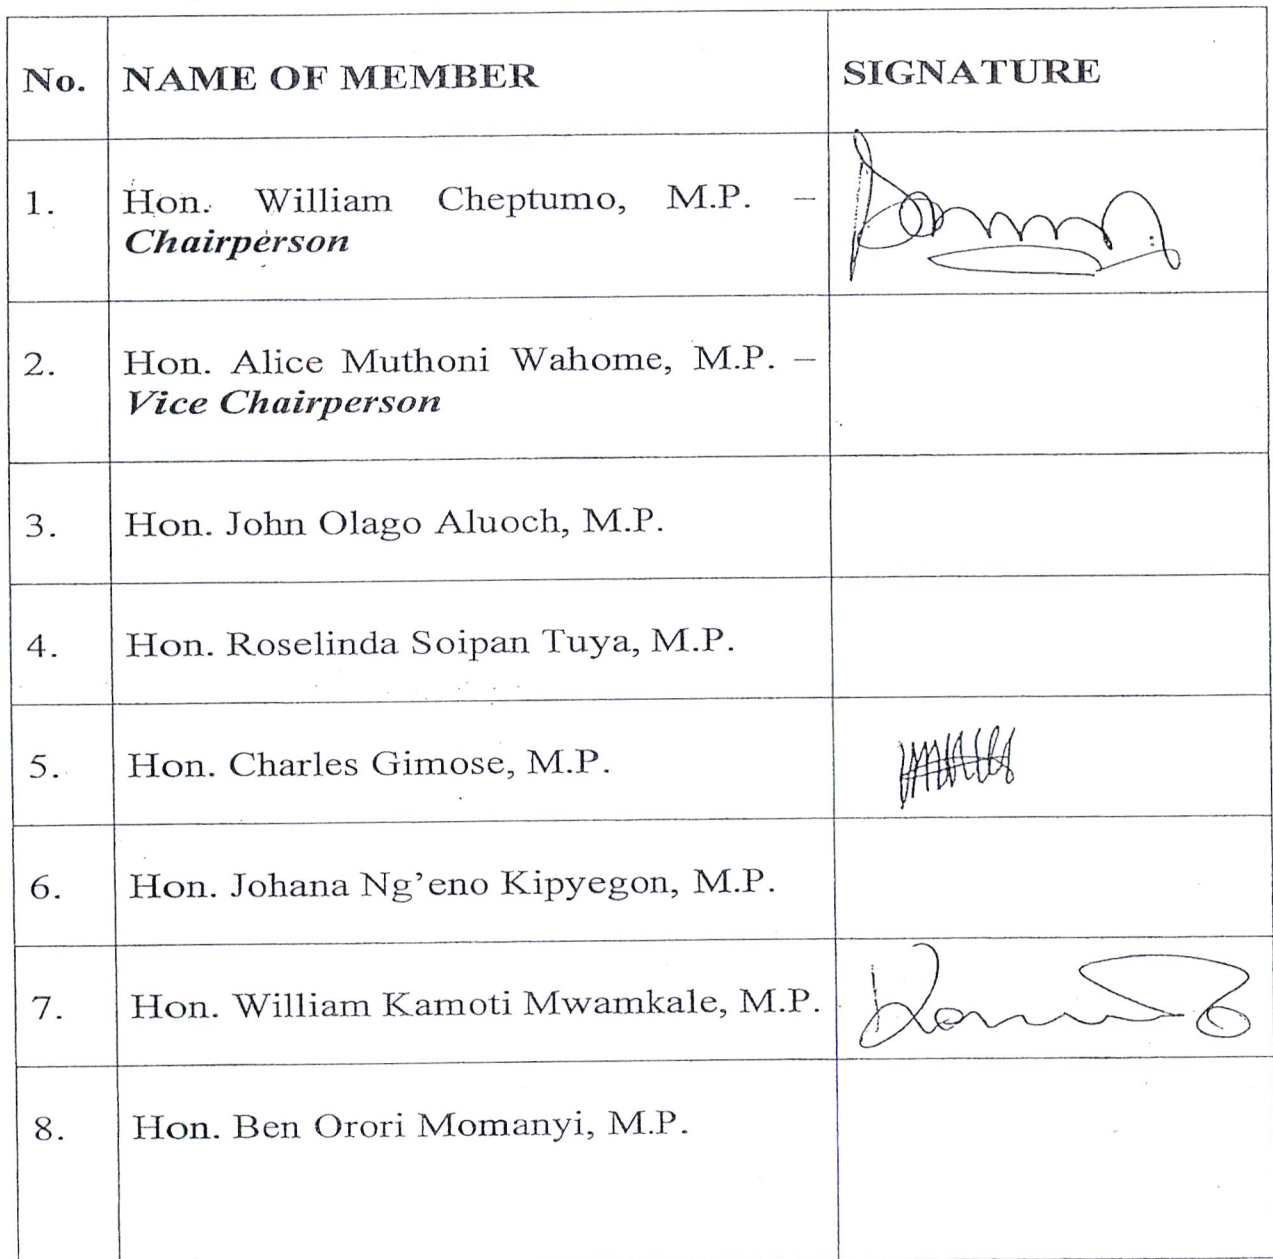 No. NAME OF MEMBER SIGNATURE
1. Hon. William Cheptumo, M.P. –
Chairperson
2. Hon. Alice Muthoni Wahome, M.P. –
Vice Chairperson
3. Hon. John Olago Aluoch, M.P.
4. Hon. Roselinda Soipan Tuya, M.P.
5. Hon. Charles Gimose, M.P.
6. Hon. Johana Ng’eno Kipyegon, M.P.
7. Hon. William Kamoti Mwamkale, M.P.
8. Hon. Ben Orori Momanyi, M.P.